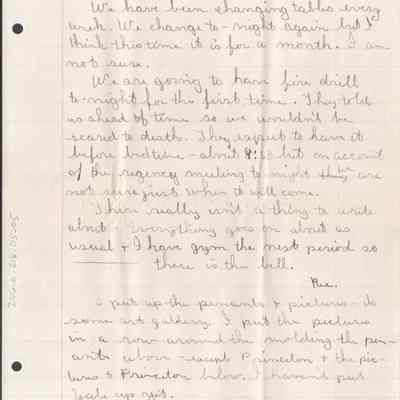 We have been changing tables every
week. We change to-night again but I
think this time it is for a month. I am
not sure.
We are going to have fire drill
to-night for the first time. They told
us ahead of time so we wouldn't be
scared to death. They expect to have it
before bedtime - about but on account
of the regency meeting to-night they we are
not sure just when it will come.
There really isn't a thing to write
about - Everything goes on about as
usual + I have gym the next period so
there is the bell.
I put up the penants + pictures - to
some art gallery. I put the pictures
in a row around the molding the pen-
ants above - except Princeton + the pic-
tures & Princeton below. I havent put
Yale up yet.